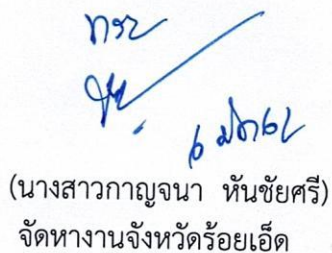 ทราบ
(นางสาวกาญจนา หันชัยศรี)
จัดหางานจังหวัดร้อยเอ็ด